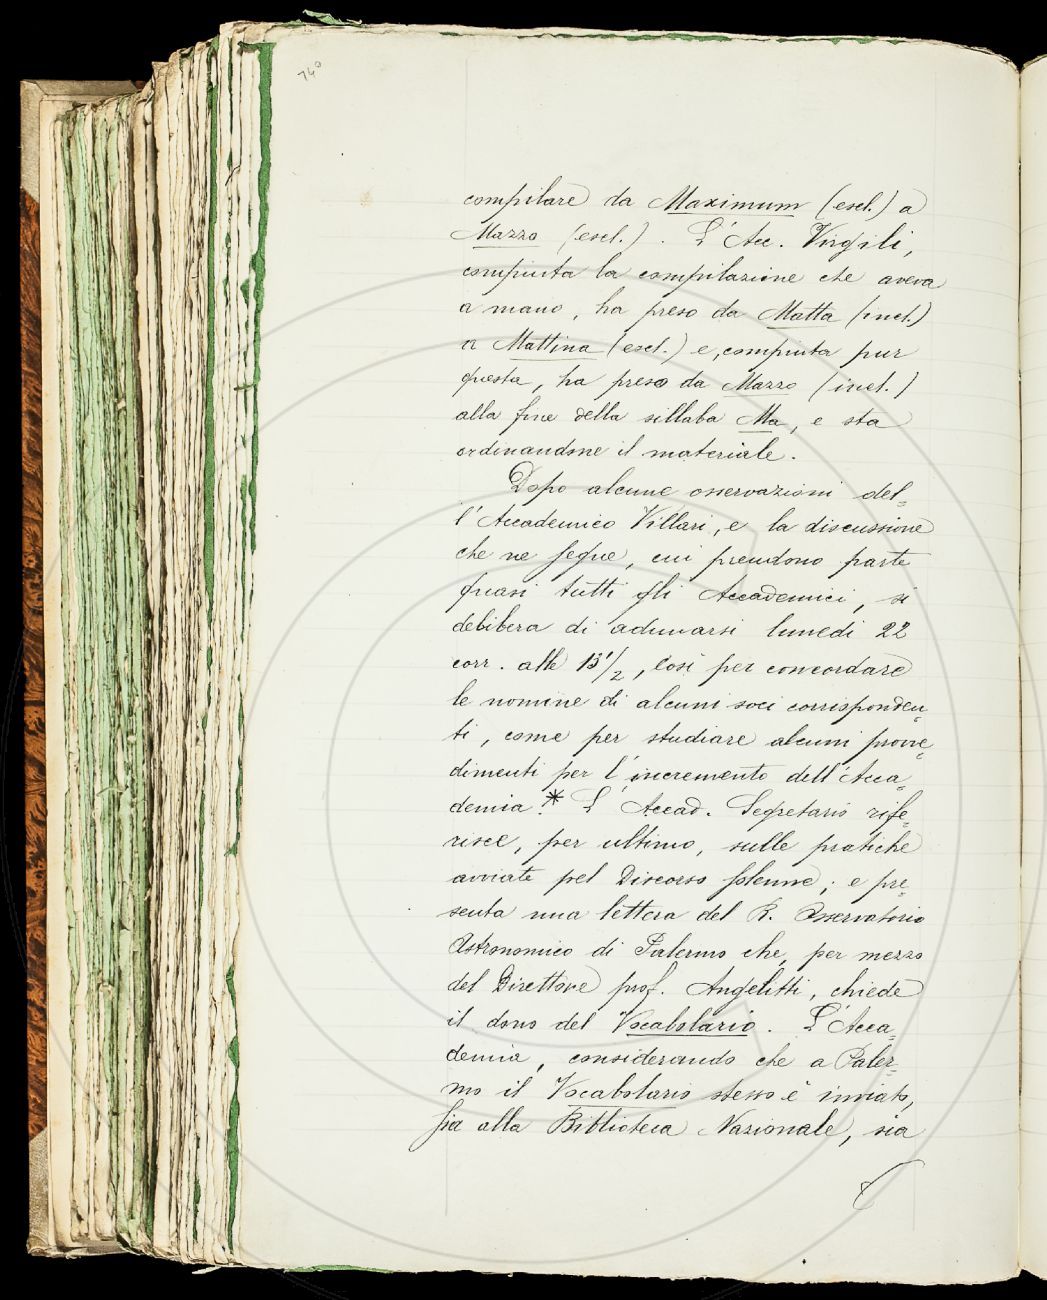 740
compilare da Maximum (escl.) a
Mazza (escl.). L'Acc. Virgili,
compiuta la compilazione che aveva
a mano, ha preso da Matta (incl.)
a Mattina (escl.) e, compiuta pur
questa, ha preso da Mazza (incl.)
alla fine della sillaba Ma, e sta
ordinandone il materiale.
Dopo alcune osservazioni del-
l'Accademico Villari, e la discussione
che ne segue, cui prendono parte
quasi tutti gli Accademici, si
delibera di adunarsi lunedì 22
corr. alle 13 1/2, così per concordare
le nomine di alcuni soci corrisponden-
ti, come per studiare alcuni provve-
dimenti per l'incremento dell'Acca-
demia.* L'Accad. Segretario rife-
risce, per ultimo, sulle pratiche
avviate pel Discorso solenne; e pre-
senta una lettera del R. Osservatorio
Astronomico di Palermo che, per mezzo
del Direttore prof. Angelitti, chiede
il dono del Vocabolario. L'Acca-
demia, considerando che a Paler-
mo il Vocabolario stesso è inviato,
sia alla Biblioteca Nazionale, sia